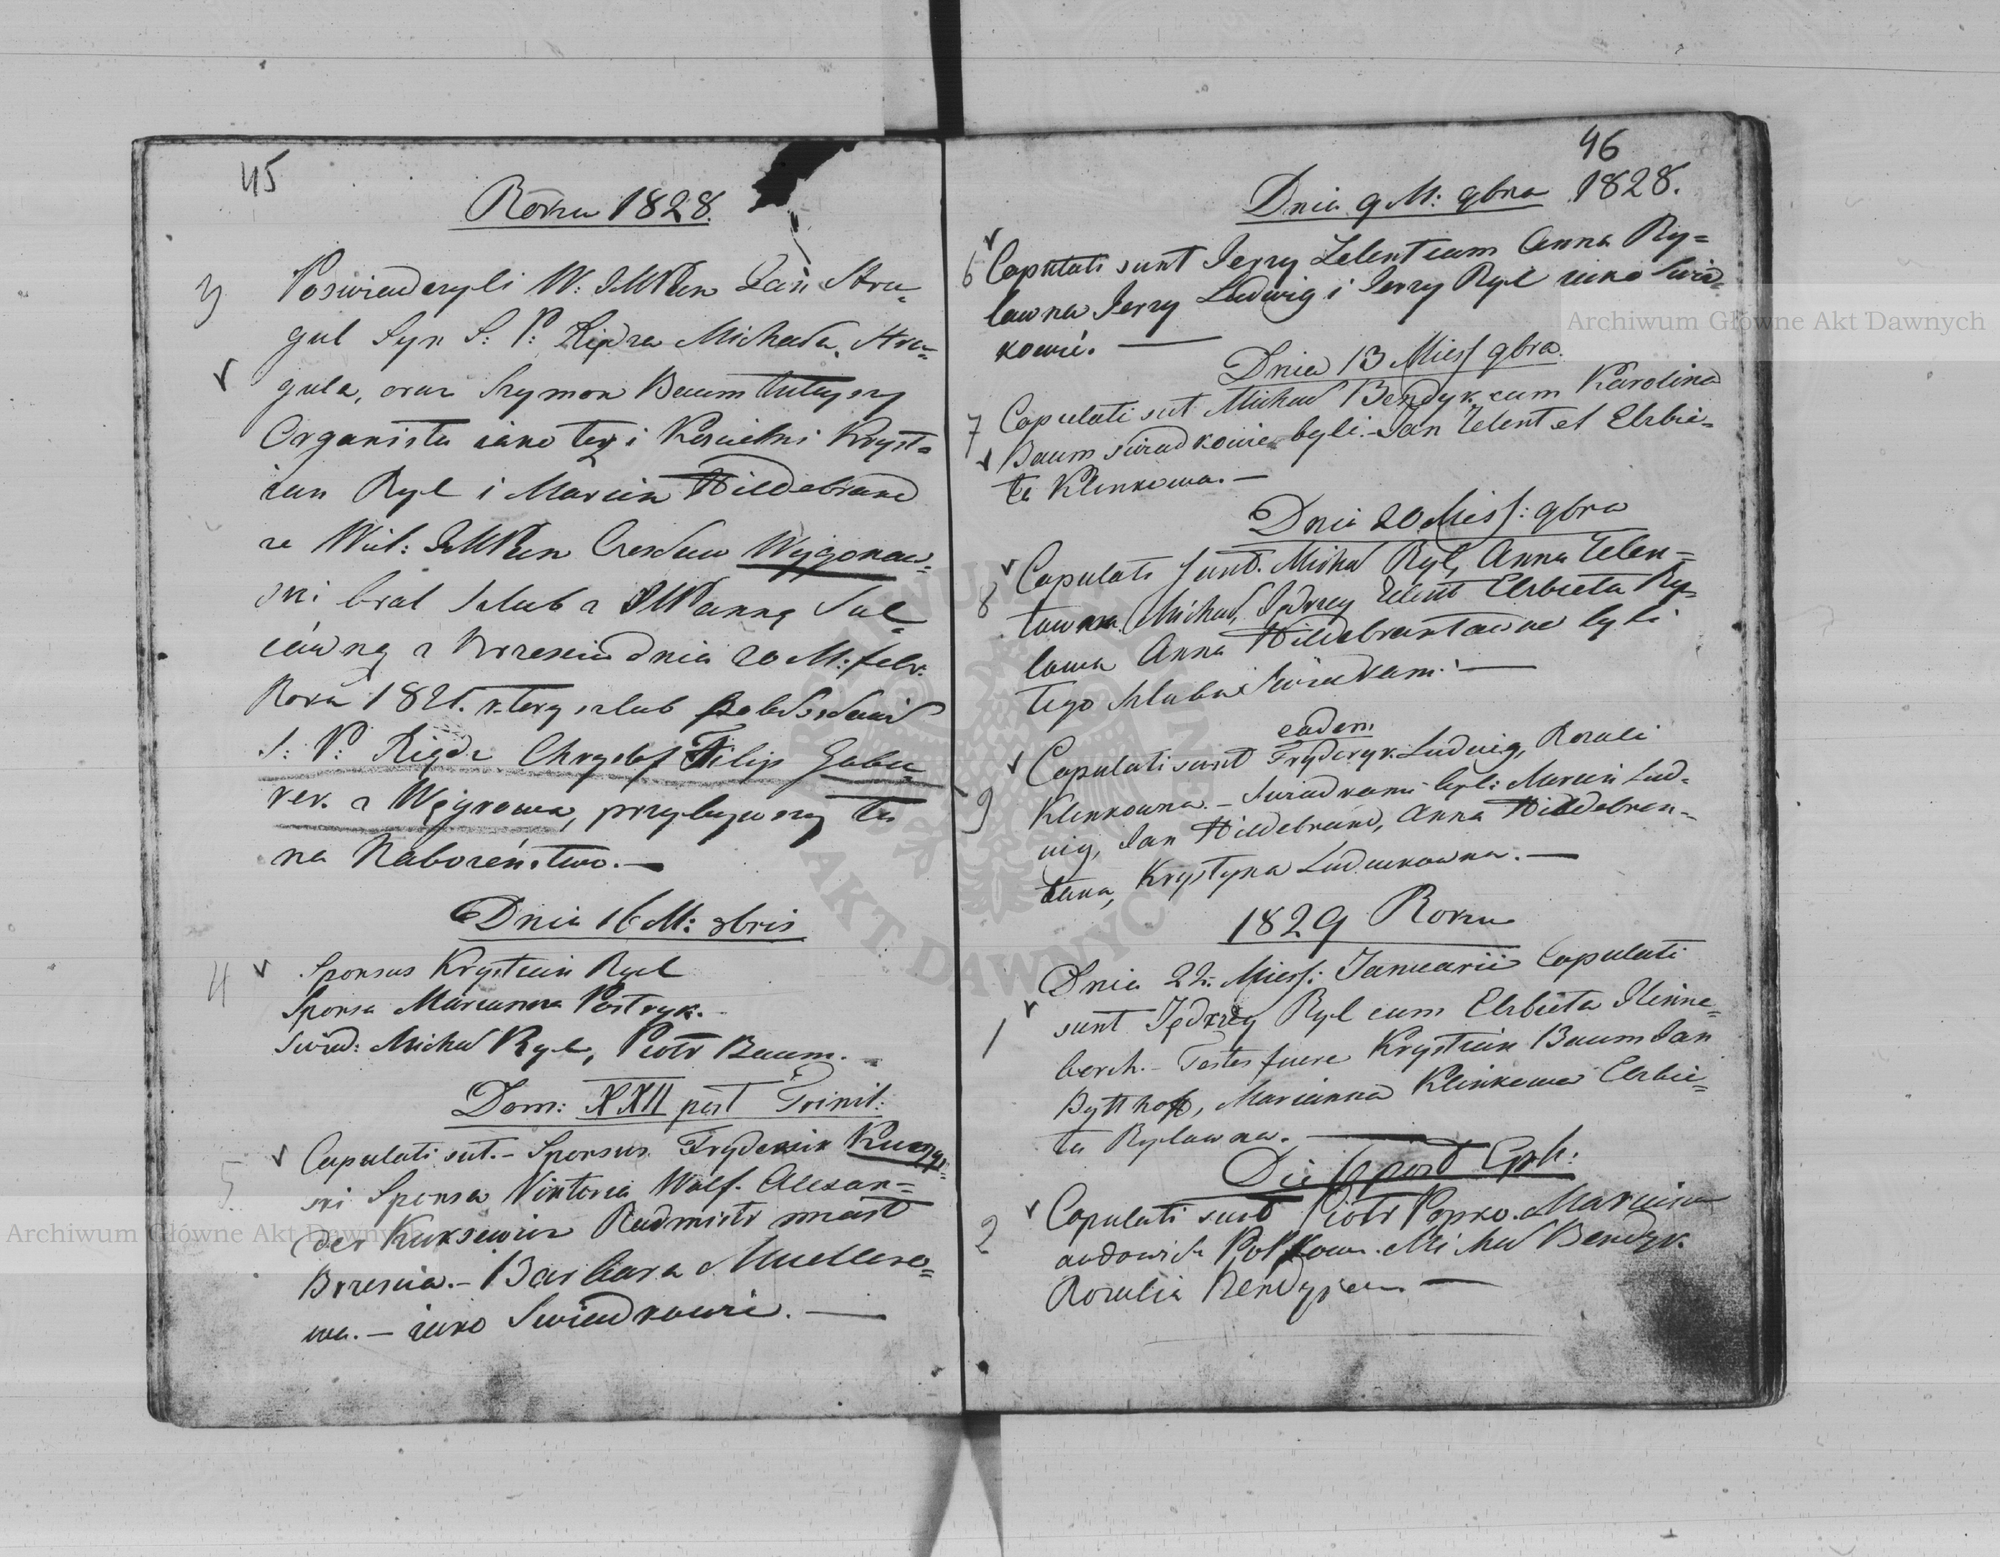 45
Roku 1828.
3
Poświadczyli W: JMPan Jan Stra-
gul Syn S: P: Xiędza Michała Stra-
gula, oraz Szymon Baum tuteyszy
Organista iako też i Koscielni Kryst-
ian Ryl i Marcin Hildebrand
ze Wiel: JMPan Czesław Wygonow-
ski brał szlub z JMPanną Sul-
ówną z Brzescia dnia 20 M: febr.
Roku 1821. ktory szlub
S: P: Xiądz Chrystof Filip
z Węgrowa, przybywszy tu
na Nabożeństwo.—
Dnia 16 M: 8bris
4
Sponsus Krystian Ryl
Sponsa Marianna
Swiad: Michał Ryl, Piotr Baum.
Dom: XXII post Trinit:
5
Copulati sut.- Sponsus Fryderik
ski Sponsa Viktoria Wolf. Alexan-
der Kuksewicz Radmistr miast
Brzescia.- Barbara Muellero-
wa.- iako Swiadkowie.—
46
Dnia 9 M: 9bra 1828.
6
Copulati sunt Jerzy Zelent cum Anna Ry-
lowna Jerzy Ludwig i Jerzy Ryl iako Swiad-
kowié.—
Dnia 13 Mies 9bra.
7
Copulati sut Michał Bendyk cum Karolina
Baum swiadkowie byli.- Jan Zelent et Elzbie-
ta Klinkowa.—
Dnia 20 Mies: 9bra
8
Copulati sunt. Michał Ryl, Anna Zelen-
towna. Michał, Jędrzey Zelent Elzbieta Ry-
lowa Anna Hildebrantowna byli
tego szlubu Swiadkami.—
eadem
9
Copulati sunt Fryderyk Ludwig, Rozali
Klinkowna.- Swiadkami byli Marcin Lud-
wig, Jan Hildebrand, Anna Hildebran-
towa, Krystyna
1829 Roku
1
Dnia 22: Mies: Januarii Copulati
sunt Jędrzey Ryl cum Elzbieta
berch.- Testes fuere Krystian Baum Jan
Bytthof, Marianna Klinkowa Elzbie-
ta Rylowna.—
Die 6 post Eph:
2
Copulati sunt Piotr Popko. Marcin
Michał Bendyk.
Rozalia —
Archiwum Główne Akt Dawnych
Archiwum Główne Akt Dawnych
ARCHIWUM GŁÓWNE AKT DAWNYCH